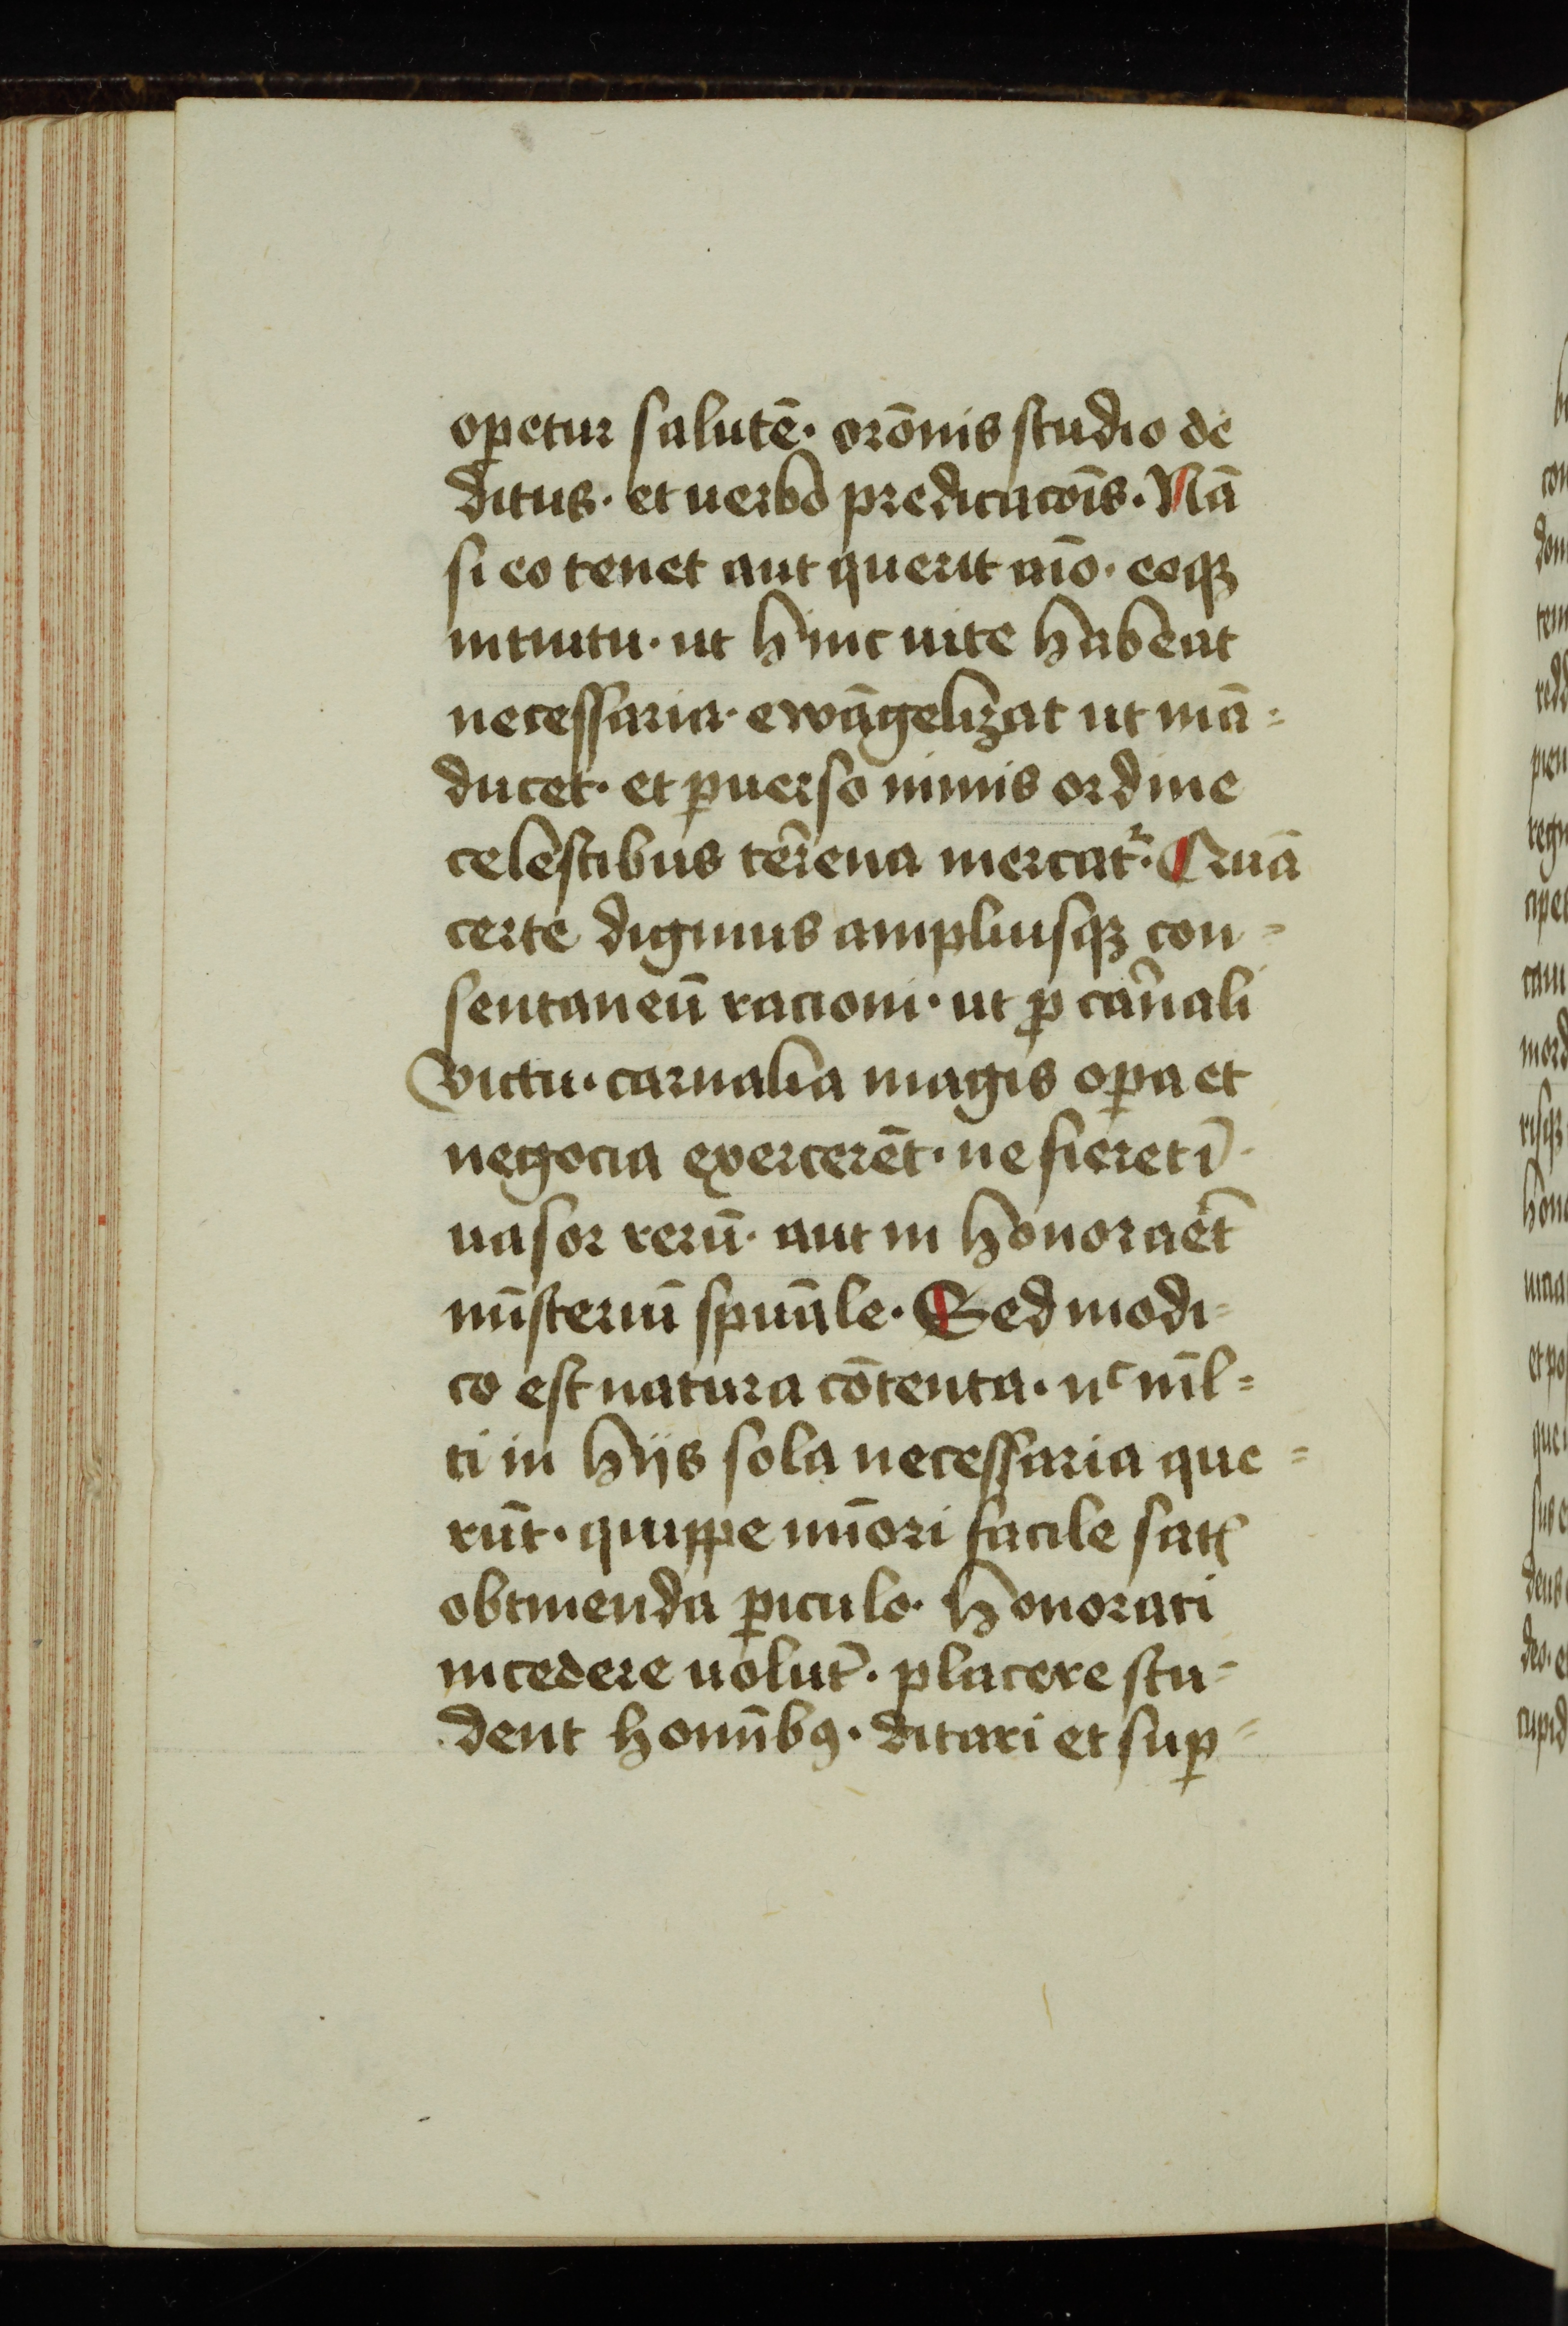 oꝑetur salutē. orōnis studio de
ditus. et uerbo predicacōīs. Nā
si eo tenet aut querit aīo. eoqꝫ
intuitu. ut hinc uite habeat
necessaria. ewāgelizat ut mā=
ducet. et ꝑuerso nimis ordine
celestibus terrena mercatr. Quā
certe dignius ampliusqꝫ con=
sentaneū racioni. ut ꝓ carnali
victu. carnalia magis oꝑa et
negocia exercerēt. ne fieret ī
uasor rerū. aut in honoraret
mīsteriū spūāle. Sed modi=
co est natura cōtenta. nc ml̄=
ti in hijs sola necessaria que=
rūt. quippe mīori facile satꝭ
obtinenda ꝑiculo. honorati
incedere uolūt. placere stu=
dent homībꝰ. ditari et suꝑ=